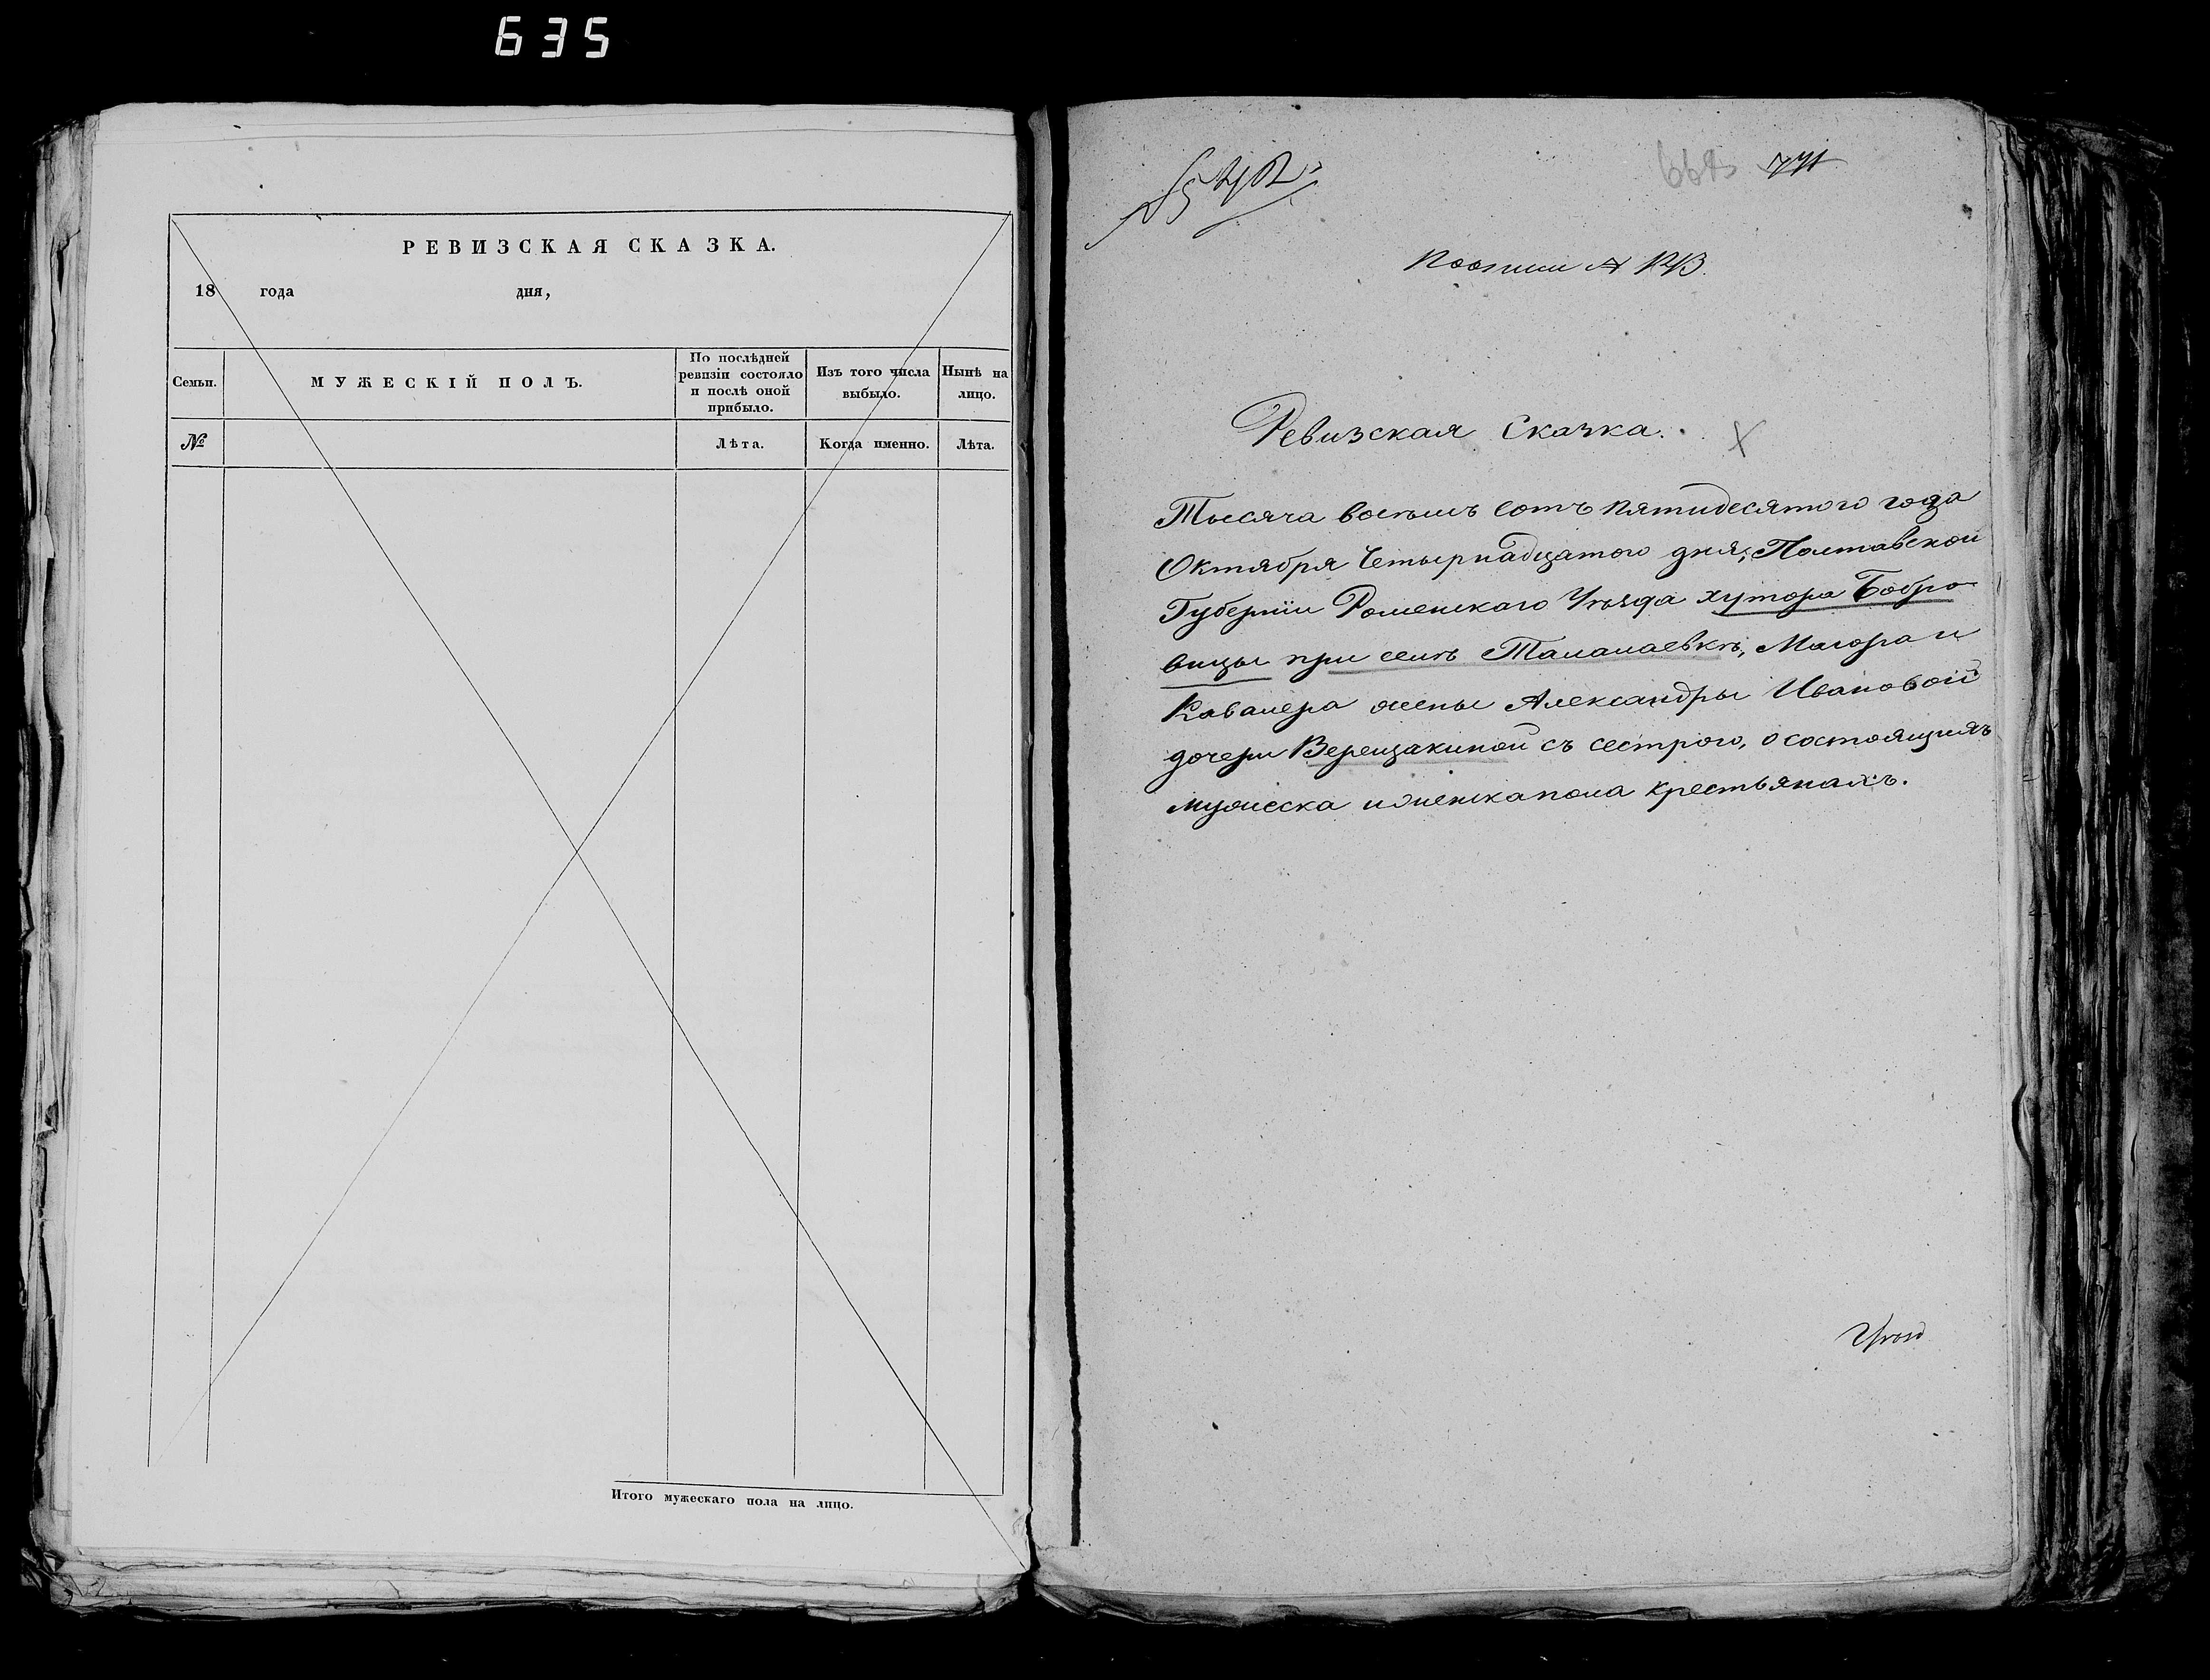 635
РЕВИЗСКАЯ СКАЗКА.
18 года дня,
Семьи.
МУЖЕСКІЙ ПОЛЪ.
По послѣдней
ревизіи состояло
и послѣ оной
прибыло.
Изъ того числа
выбыло.
Нынѣ на
лицо.
№
Лѣта.
Когда именно.
Лѣта.
Итого мужескаго пола на лицо.
771
По описи №
Ревизская Сказка.
Тысяча восемь сотъ пятидесятого года
Октября Четырнадцатого дня, Полтавской
Губерніи Роменскаго Уѣзда хутора Бобро-
вицы при селѣ Талалаевкѣ, Маіора и
Кавалера жены Александры Ивановой
дочери Верещакиной съ сестрою, о состоящихъ
мужеска и женска пола крестьянахъ.